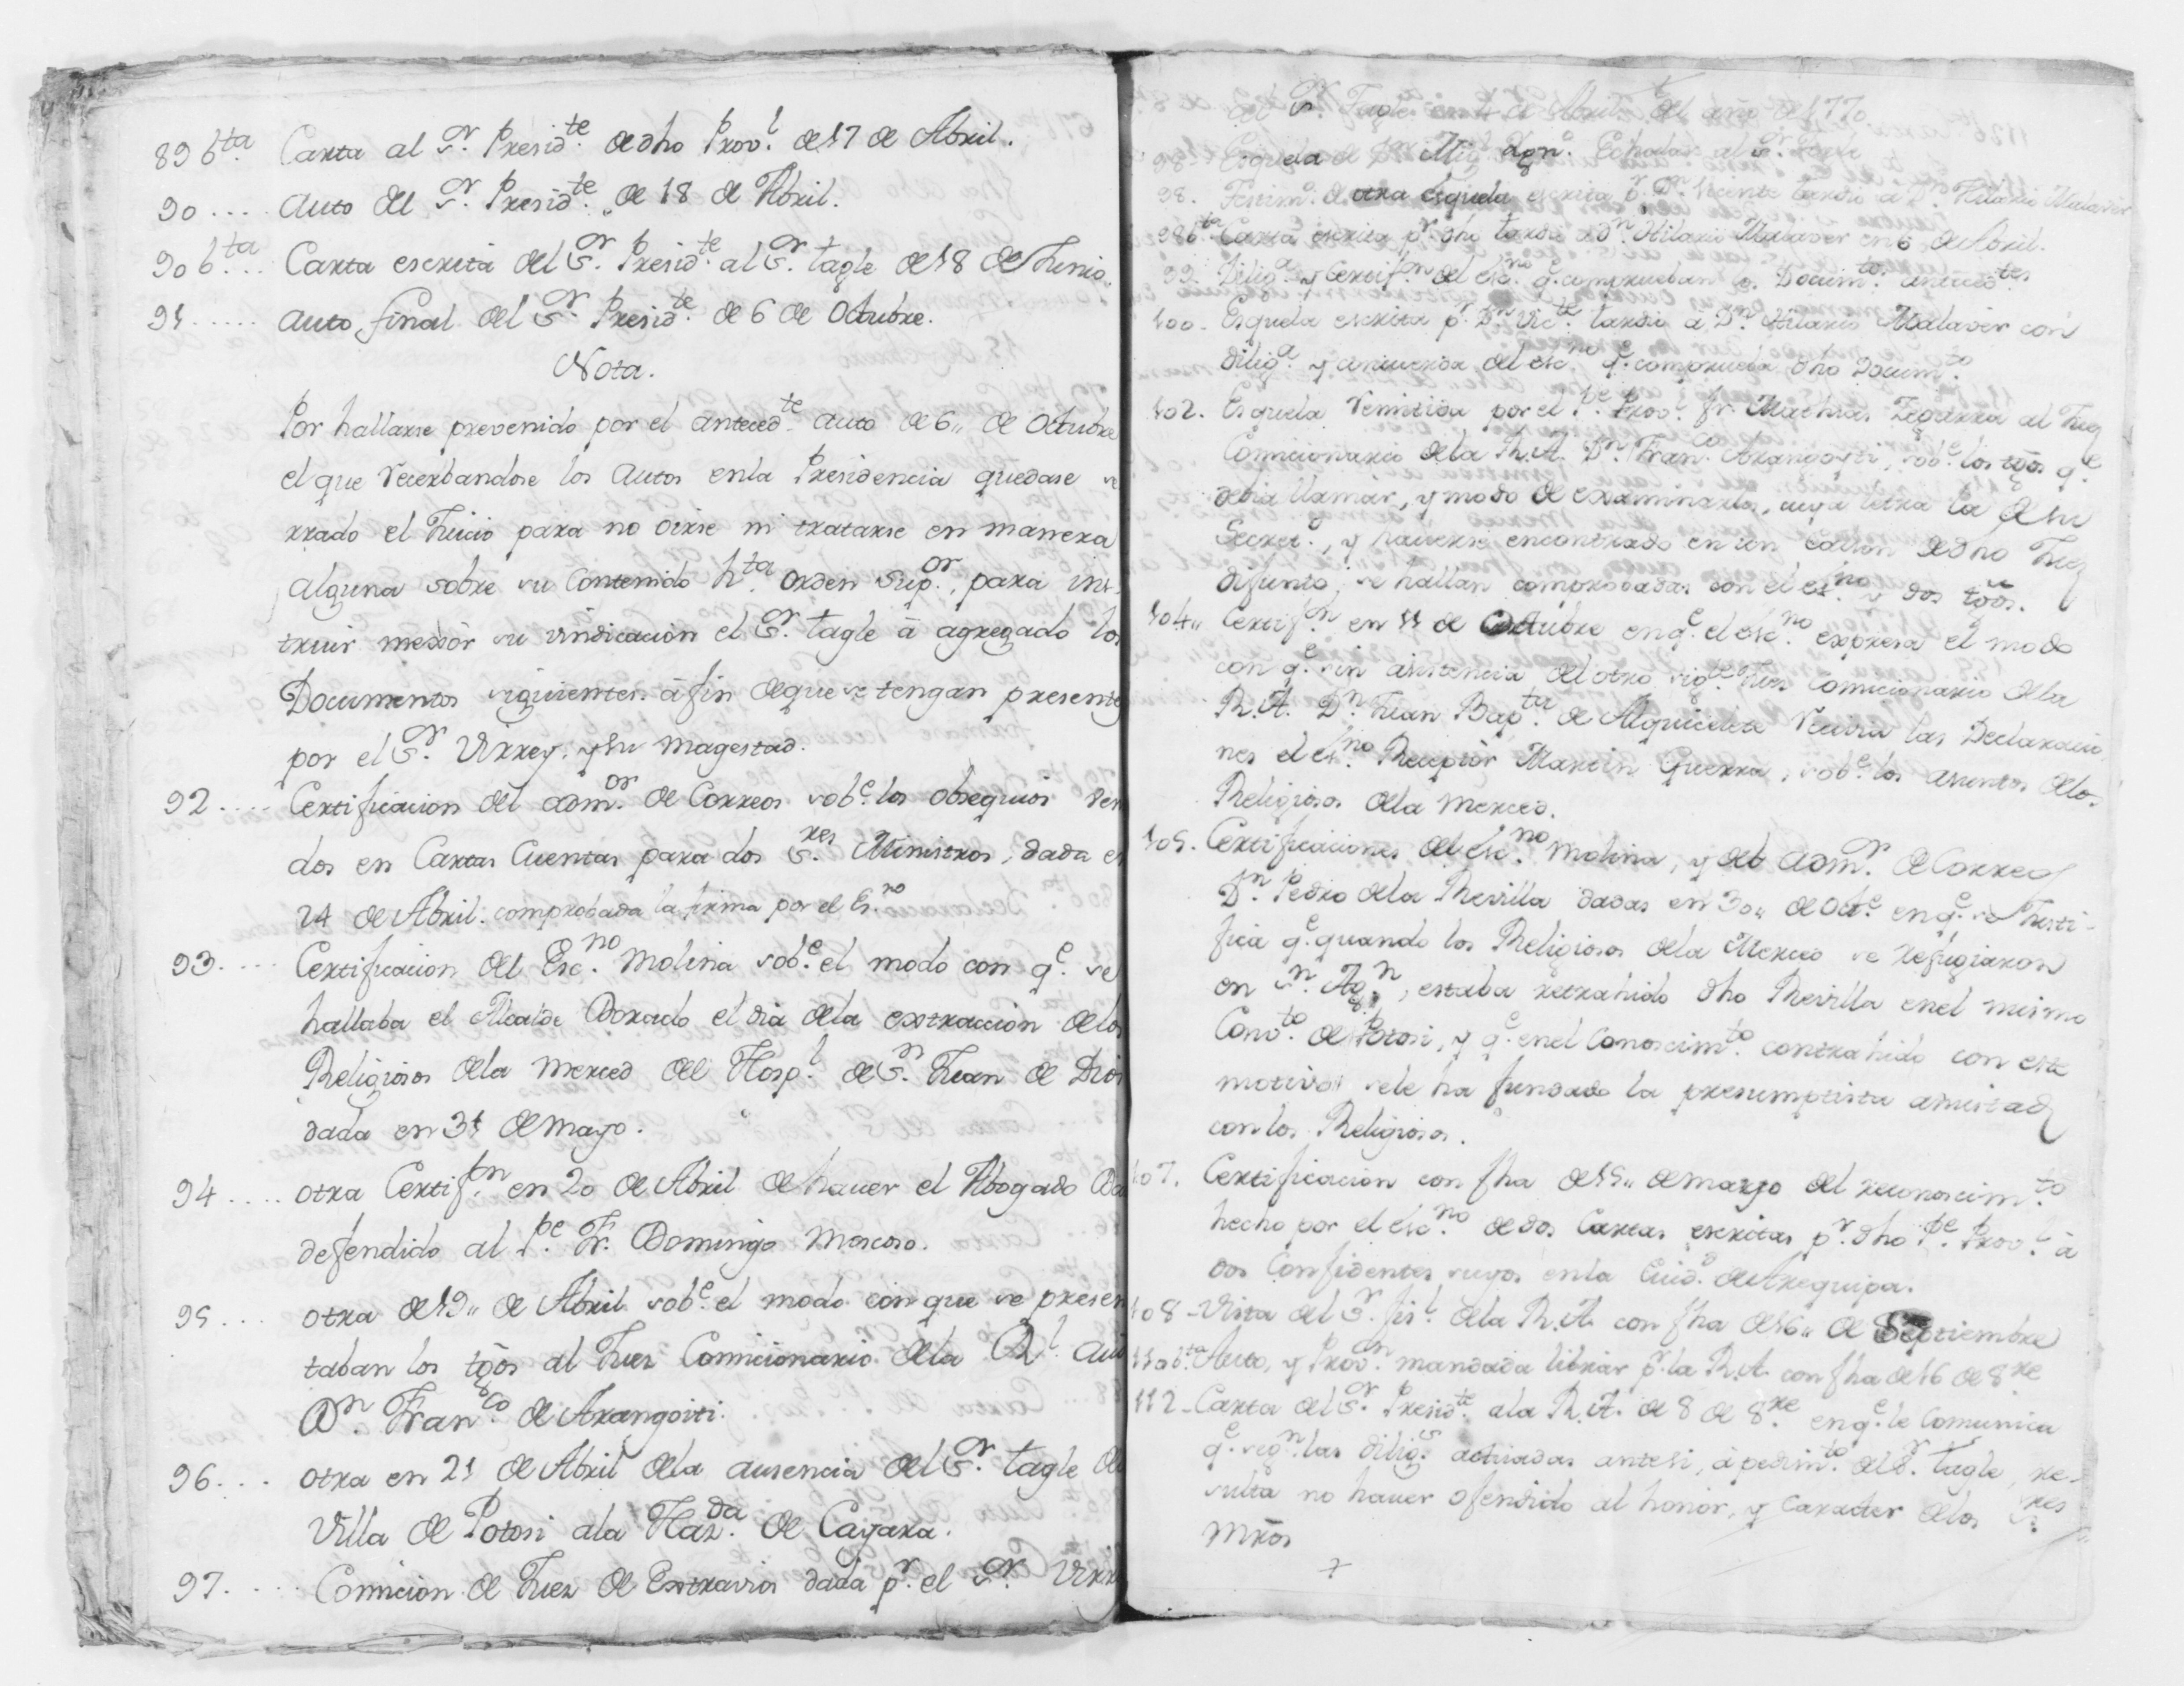 89 bta. Carta al Sr. Presidte. de dho Provl. de 17 de Abril.
90.... Auto del Sr. Presidte. de 18 de Abril.
90 bta... Carta escrita del Sr. Presidte. al Sr. tagle de 18 de Junio.
91..... Auto final del Sr. Presidte. de 6 de Octubre.
Nota.
Por hallarse prevenido por el antecedte. auto de 6,, de Octubre
el que recerbandose los Autos enla Presidencia quedase se
rrado el Juicio para no oirse ni tratarse en manera
alguna sobre su Contenido hta. orden Supor., para ins-
truir mexòr su vindicacion el Sr. tagle à agregado los
Documentos siguientes à fin deque se tengan presentes
por el Sr. Virrey, y su Magestad.
92.... Certificacion del admor. de Correos sobe. los obsequios
dos en Cartas Cuentas para dos Sres. Ministros, dada en
24 de Abril. comprobada la firma por el Esno.
93.... Certificacion del Escno. Molina sobe. el modo con qe. se
hallaba el Alcalde Dorado el dia dela extraccion delos
Religiosos dela Merced del Hospl. de Sn. Juan de Dios
dada en 31 de Mayo.
94.... otra Certifn. en 20 de Abril de haver el Abogado
defendido al Pe. Fr. Domingo Moscoso.
95... otra de 19,, de Abril sobe. el modo con que se presen
taban los tgõs al Juez Comicionario dela Rl. Aud
Dn. Franco. de Arangoiti.
96... otra en 21 de Abril dela ausencia del Sr. tagle de
Villa de Potosi ala Hazda. de Cayara.
97.... Comicion de Juez de Extravios dada pr. el Sr. Virr
del Sr. Tagle en 4 de Abril del año de 1770
98. Esquela de Dn. Migl. al Sr. Tagle
98. Testimo. de otra esquela escrita pr. Dn. Vicente tardio a Dn. Hilario Malaver
98 bta Carta escrita pr. dho tardio a Dn. Hilario Malaver en 6 de Abril.
99. Diliga. y Certifn. del escno. qe. comprueban los Documtos. antecedtes.
100. Esquela escrita pr. Dn. Victe. tardio à Dn. Hilario Malaver con
diliga. y del escno. qe. comprueba dho Documto.
102. Esquela remitida por el Pe. Provl. fr. Mathias Zegarra al Juez
Comicionario dela R.A. Dn. Franco. Arangoyti, sobe. los tgõs qe.
debia llamàr, y modo de examinarlos, cuya letra la de su
Secreto., y haverse encontrado en un caxon de dho Juez
difunto, se hallan comprobadas con el esno. y dos tgõs.
104,, Certifn. en 11 de Octubre en qe. el escno. expresa el modo
con qe. sin asistencia del otro sigte. Juez Comicionario dela
R.A. Dn. Juan Bapta. de Alquiceleta recivia las Declaracio
nes el esno. Receptòr Martin Guerra, sobe. los asuntos delos
Religiosos dela Merced.
105. Certificaciones del escno. Molina, y del admr. de Correos
Dn. Pedro dela Revilla dadas en 30,, de Octe. en qe. se Justi-
fica qe. quando los Religiosos dela Merced se refugiaron
en Sn. Agn., estaba retrahido dho Revilla enel mismo
Convto. de Potosi, y qe. enel Conoscimto. contrahido con este
motivo sele ha fundado la presumptista amistad
con los Religiosos.
107. Certificacion con fha de 15,, de marzo del reconoscimto.
hecho por el escno. de dos Cartas escritas pr. dho Pe. Provl. à
dos Confidentes suyos enla Ciud. de Arequipa.
108- Vista del Sr. fisl. dela R.A. con fha de 16,, de Septiembre
110 bta. Auto, y Provn. mandada librar pr. la R.A. con fha de 16 de 8re
112- Carta del Sr. Presidte. ala R.A. de 8 de 8re. en qe. le Comunica
qe. segn. las diligs. actuadas antesi, à pedimto. del Sr. tagle, re-
sulta no haver ofendido al honòr, y Caracter delos Sres
Mrõs